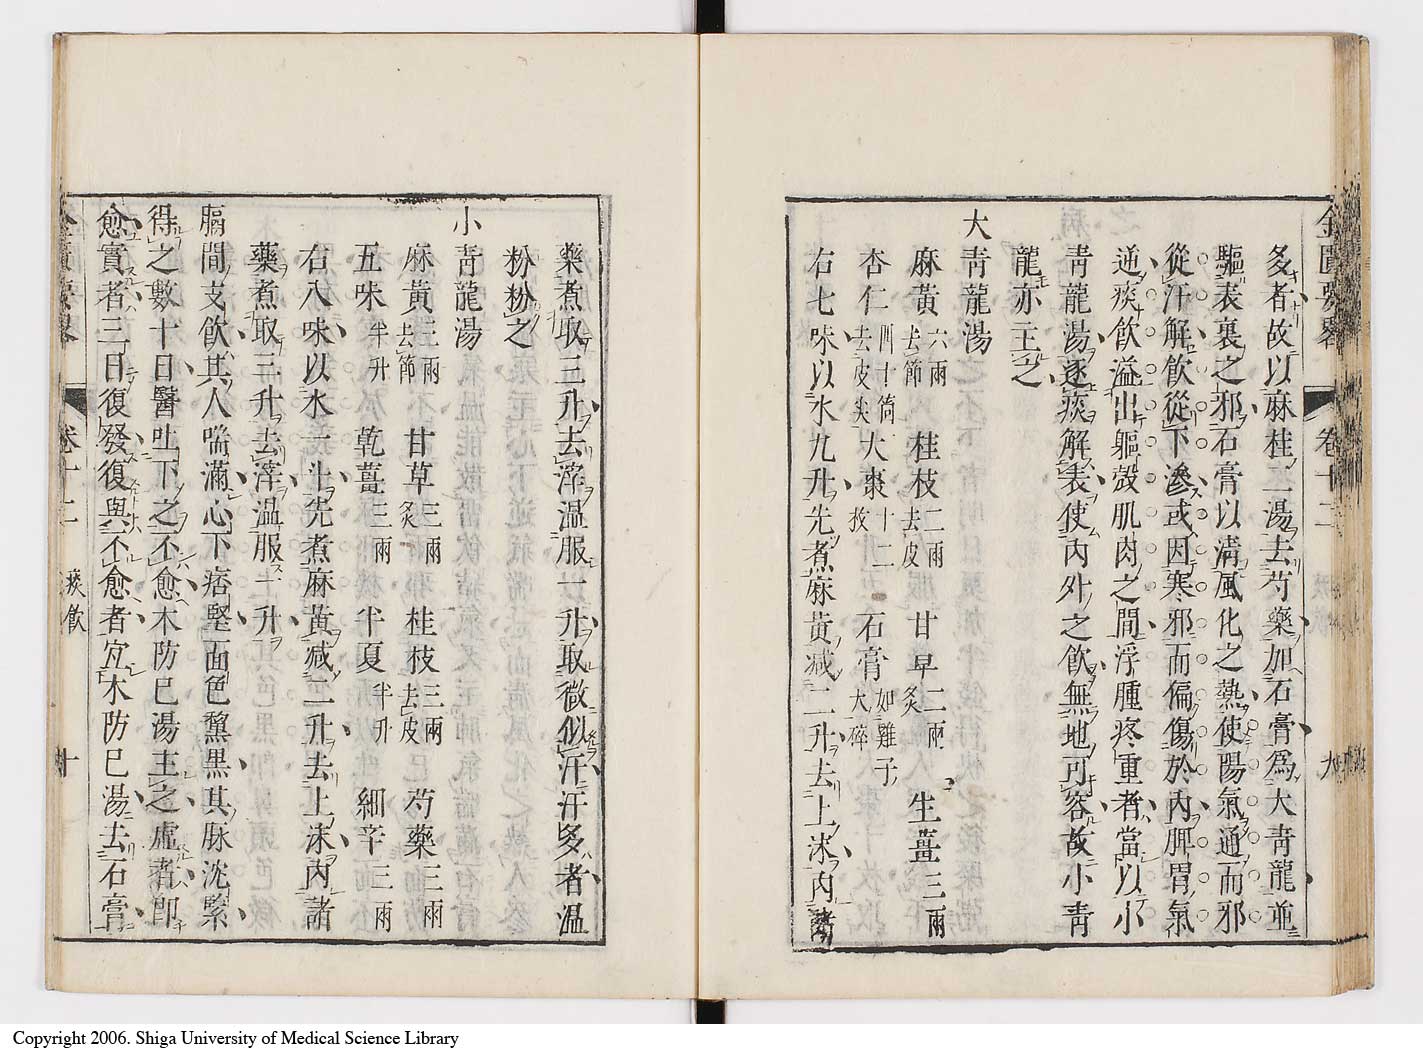 金匱要畧 卷十二
多者故以麻桂二湯去芍藥加石膏爲大青龍並
驅表裏之邪石膏以清風化之熱使陽氣通而邪
從汗解飲從下滲或因寒邪而偏傷於內脾胃氣
逆痰飲溢出軀殼肌肉之間浮腫疼重者當以小
靑龍湯逐痰解表使內外之飲無地可容故小靑
龍亦主之
大靑龍湯
麻黃六兩去節 桂枝二兩去皮 甘草二兩炙 生薑三兩
杏仁四十箇去皮尖 大棗十二枚 石膏如雞子大碎
右七味以水九升先煮麻黃减二升去上沫內諸
藥煮取三升去滓温服一升取微似汗汗多者温
粉粉之
小靑龍湯
麻黃三兩去節 甘草三兩炙 桂枝三兩去皮 芍藥三兩
五味半升 乾薑三兩 半夏半升 細辛三兩
右八味以水一斗先煮麻黃减二升去上沫內諸
藥煮取三升去滓温服一升
膈間支飲其人喘滿心下痞堅面色黧黑其脉沈緊
得之數十日醫吐下之不愈木防已湯主之虛者卽
愈實者三日復發復與不愈者宜木防已湯去石膏
金匱要畧 卷十二 痰飲 十
Copyright 2006. Shiga University of Medical Science Library